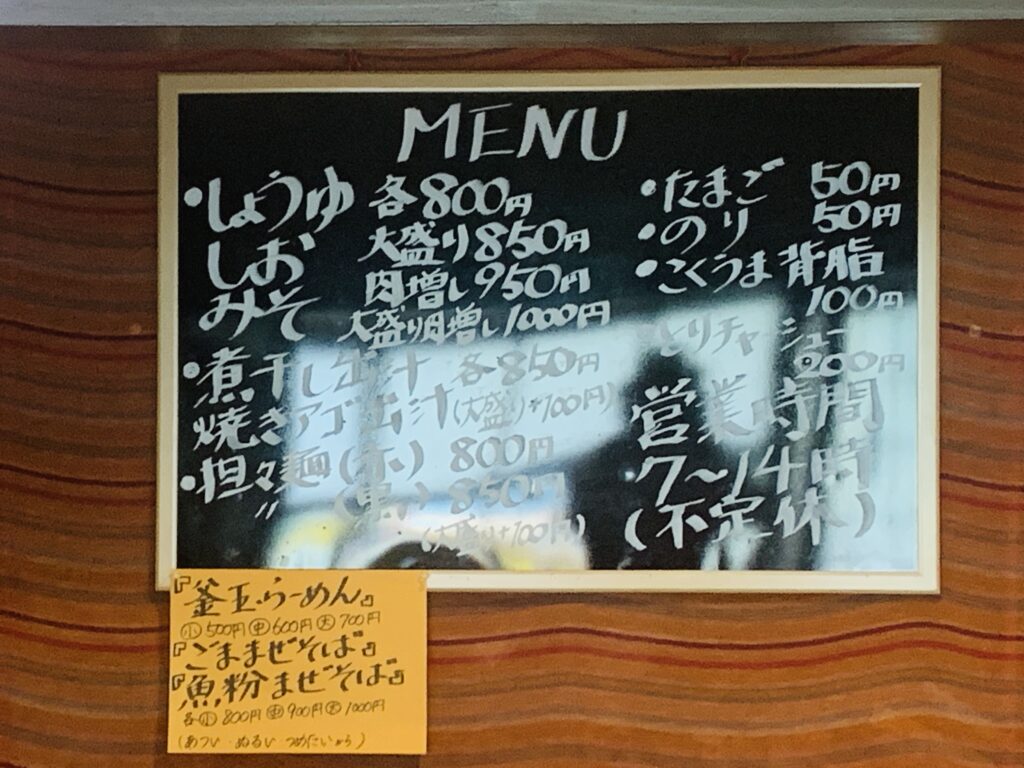 MENU
・しょうゆ 各800円
しお 大盛り850円
みそ 肉増し950円
大盛り肉増し1000円
・煮干し出汁 各850円
焼きアゴ出汁(大盛り+100円)
・担々麺(赤) 800円
〃 (黒) 850円
(大盛り+100円)
・たまご 50円
・のり 50円
・こくうま背脂
100円
とりチャーシュー
200円
営業時間
7〜14時
(不定休)
『釜玉らーめん』
小500円 中600円 大700円
『ごままぜそば』
『魚粉まぜそば』
各小800円 中900円 大1000円
(あつい・ぬるい・つめたいから)